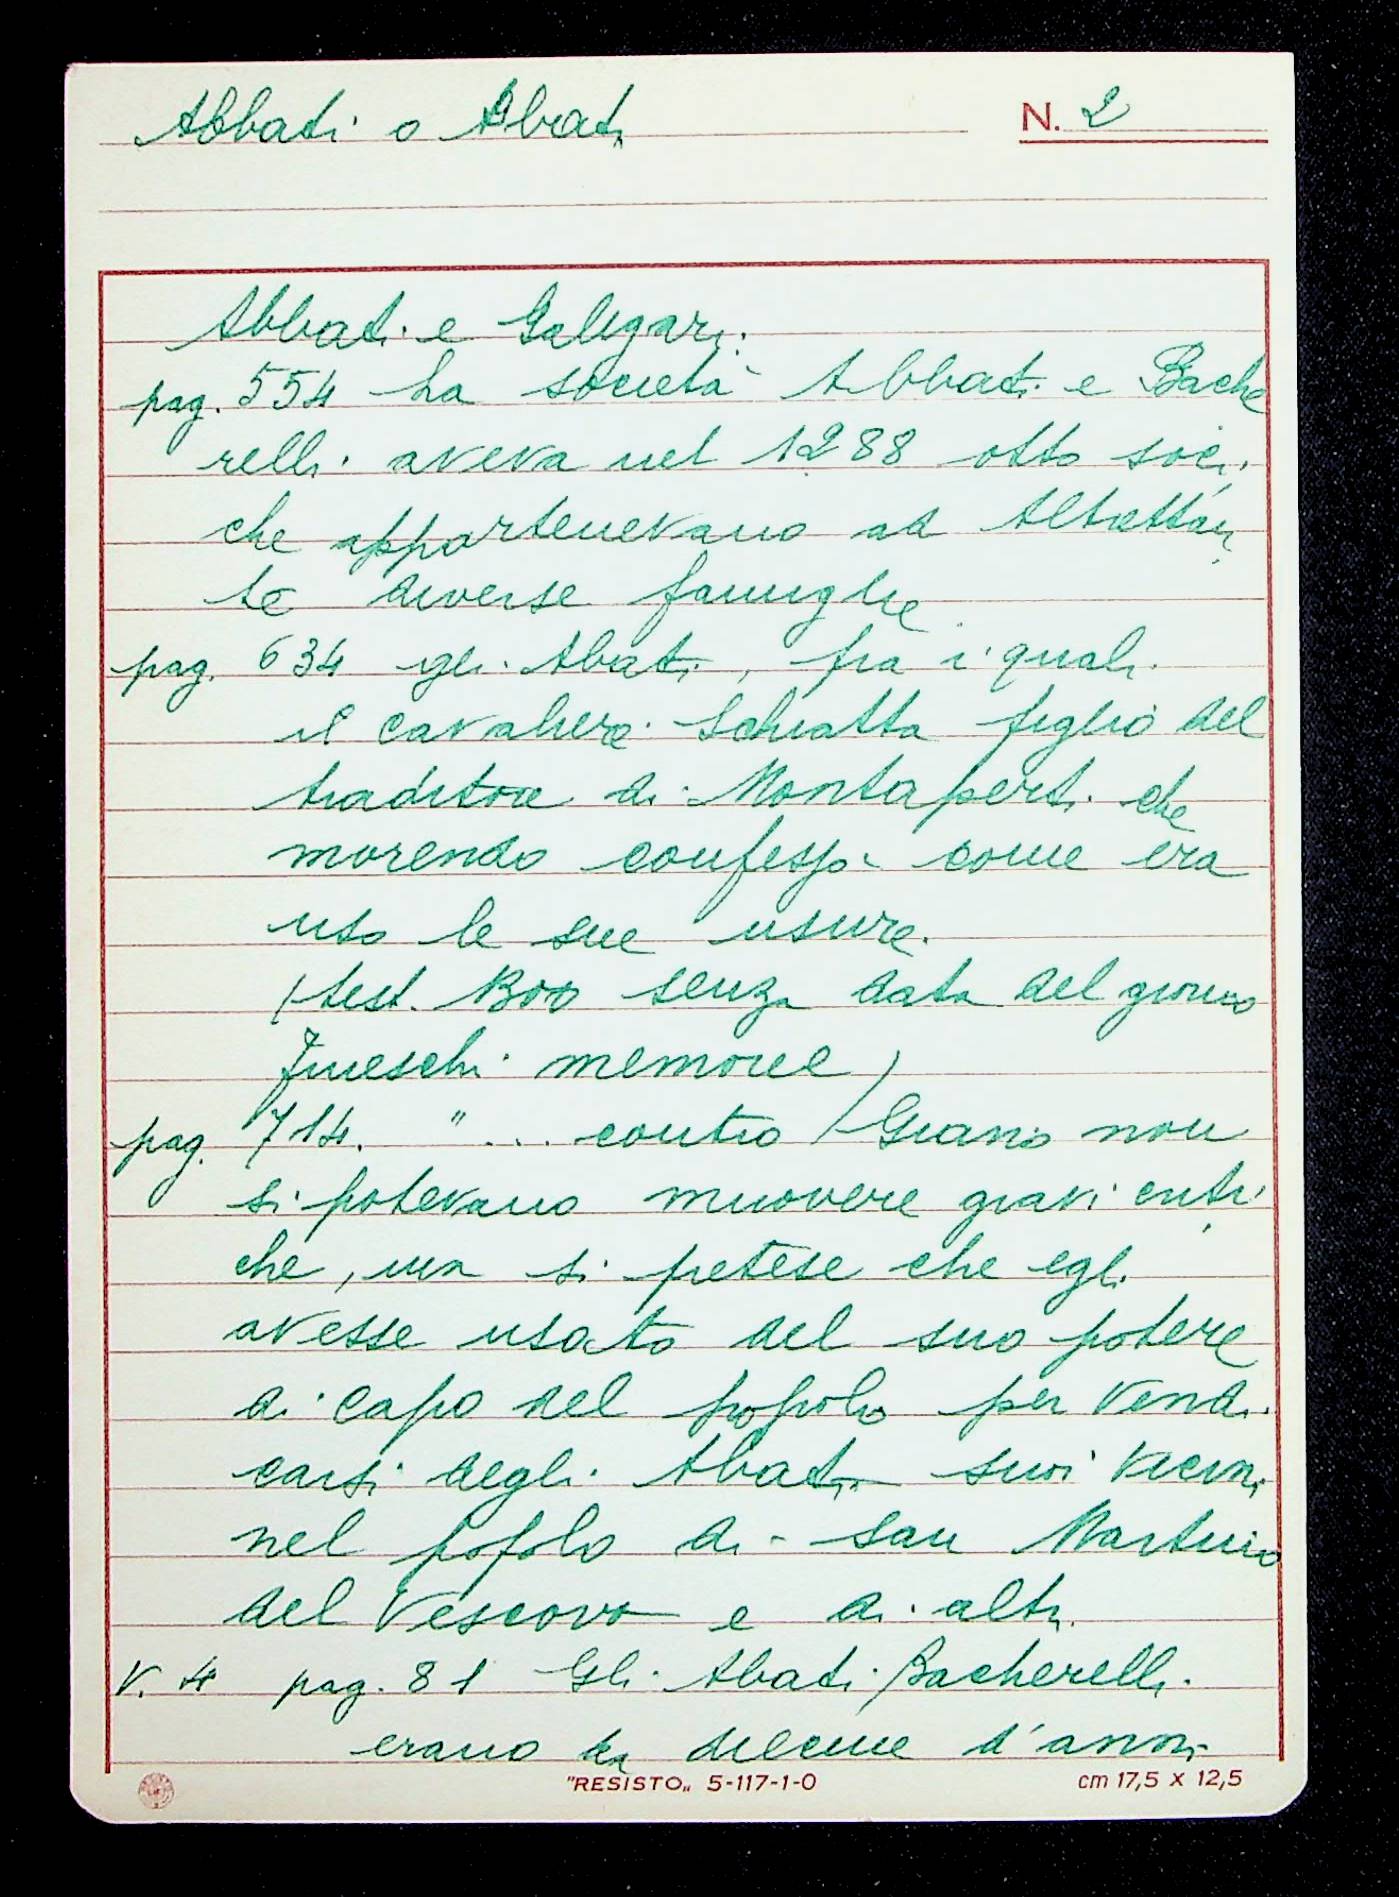 Abbati o Abati
N. 2
Abbati e Galigari.
pag. 554 La società Abbati e Bache
relli aveva nel 1288 otto soci
che appartenevano ad altrettan
te diverse famiglie
pag. 634 gli Abati, fra i quali
il cavaliere Schiatta figlio del
traditore di Montaperti che
morendo confessò come era
uso le sue usure.
(test. 1300 senza data del giorno
Fineschi memorie)
pag. 714. "... contro Giano non
si potevano muovere gravi criti
che, ma si pretese che egli
avesse usato del suo potere
di capo del popolo per vendi
carsi degli Abati suoi vicini
nel popolo di San Martino
del Vescovo e di altri.
V. 4 pag. 81 Gli Abati Bacherelli
erano da diecine d'anni
"RESISTO„ 5-117-1-0
cm 17,5 x 12,5